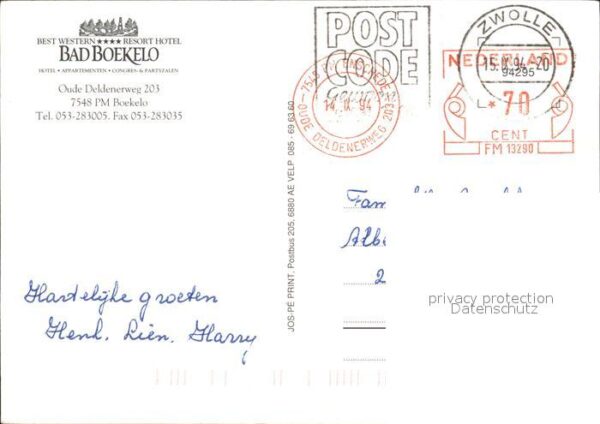 BEST WESTERN ★★★★ RESORT HOTEL
BAD BOEKELO
HOTEL • APPARTEMENTEN • CONGRES- & PARTYZALEN
Oude Deldenerweg 203
7548 PM Boekelo
Tel. 053-283005. Fax 053-283035
POST
CODE
ZWOLLE
94295
NEDERLAND
* 70
CENT
FM 13290
OUDE DELDENERWEG 203
JOS-PÉ PRINT, Postbus 205, 6880 AE VELP 085 - 69 63 60
Fam
Albe
2
Hartelijke groeten
Henk. Lien. Harry
privacy protection
Datenschutz